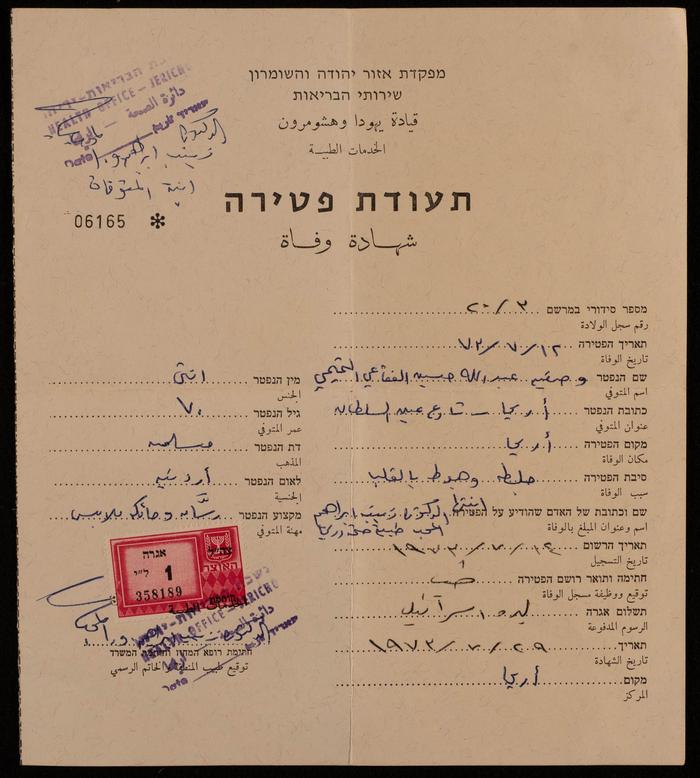 מפקדת אזור יהודה והשומרון
שירותי הבריאות
قيادة يهودا وهشومرون
الخدمات الطبية
HEALTH OFFICE – JERICHO
دائرة الصحة
תאריך تاريخ
Date
الدكتورة
زينب ابراهيم
ابنة المتوفاة
06165 *
תעודת פטירה
شهادة وفاة
מספר סידורי במרשם ٢٠/٣
رقم سجل الولادة
תאריך הפטירה ٧٣/٧/١٢
تاريخ الوفاة
שם הנפטר وصفيه عبدالله حسين الفقاعي التميمي
اسم المتوفي
כתובת הנפטר أريحا - شارع عين السلطان
عنوان المتوفي
מקום הפטירה أريحا
مكان الوفاة
סיבת הפטירה جلطه وهبوط بالقلب
سبب الوفاة
שם וכתובת של האדם שהודיע על הפטירה ابنتها الدكتورة زينب ابراهيم
اسم وعنوان المبلغ بالوفاة
תאריך הרשום ١٩٧٣/٧/١٢
تاريخ التسجيل
חתימה ותואר רושם הפטירה
توقيع ووظيفة مسجل الوفاة
תשלום אגרה ليره اسرائيلي
الرسوم المدفوعة
תאריך ١٩٧٣/٧/٢٩
تاريخ الشهادة
מקום أريحا
المركز
מין הנפטר انثى
الجنس
גיל הנפטר ٧٠
عمر المتوفي
דת הנפטר مسلمه
المذهب
לאום הנפטר أردنيه
الجنسية
מקצוע הנפטר رسّامه وحائكه ملابس
مهنة المتوفي
אגרה
1
ל"י
358189
האוצר
HEALTH OFFICE – JERICHO
دائرة الصحة
תאריך تاريخ
Date
חתימת רופא המחוז וחותמת המשרד
توقيع طبيب المنطقة والخاتم الرسمي